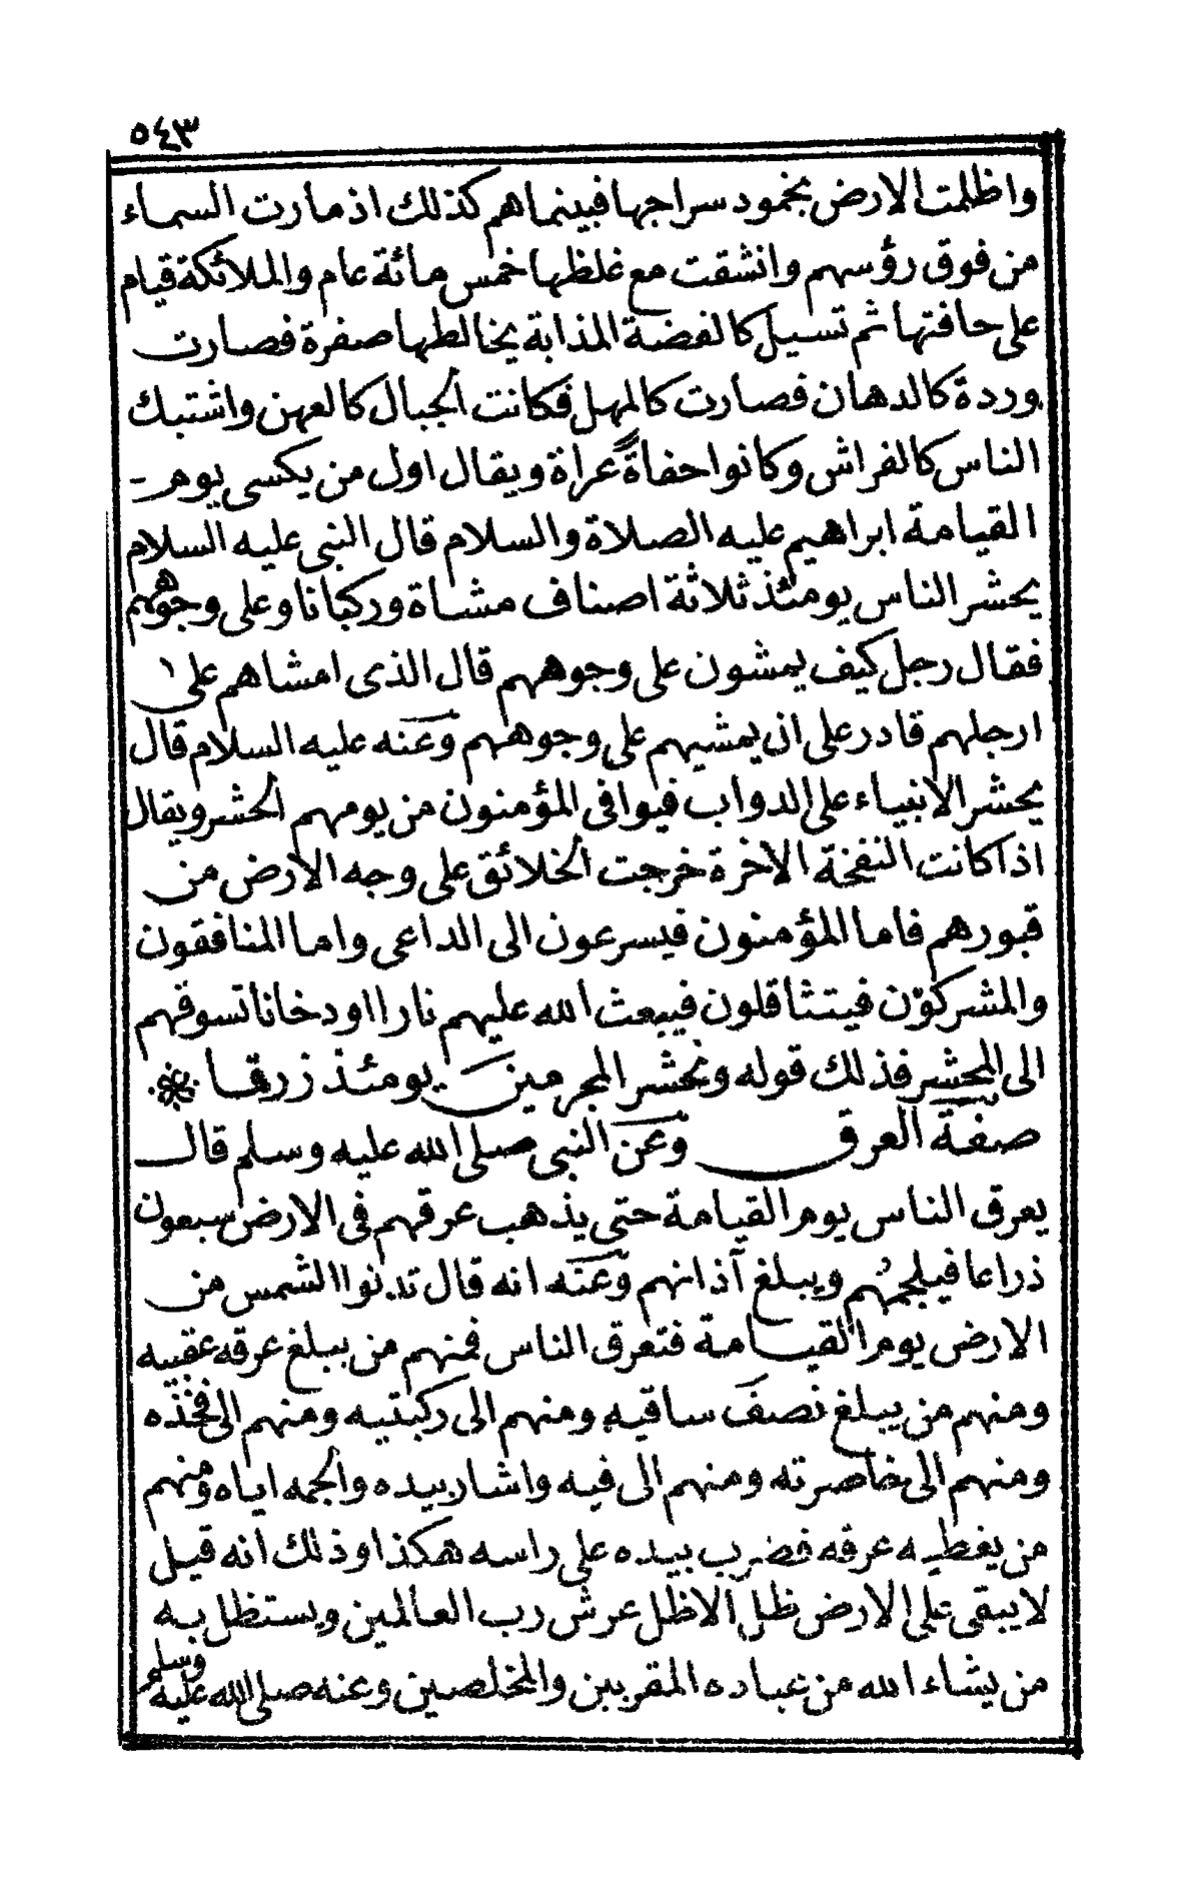 ٥٤٣
واظلمت الارض بخمود سراجها فبينماهم كذلك اذ مارت السماء
من فوق رؤسهم وانشقت مع غلظها خمس مائة عام والملائكة قيام
على حافتها ثم تسيل كالفضة المذابة يخالطها صفرة فصارت
وردة كالدهان فصارت كالمهل فكانت الجبال كالعهن واشتبك
الناس كالفراش وكانوا حفاةً عراة ويقال اول من يكسى يوم
القيامة ابراهيم عليه الصلاة والسلام قال النبى عليه السلام
يحشر الناس يومئذ ثلاثة اصناف مشاة وركبانا وعلى وجوههم
فقال رجل كيف يمشون على وجوههم قال الذى امشاهم على
ارجلهم قادر على ان يمشيهم على وجوههم وعنه عليه السلام قال
يحشر الانبياء على الدواب فيوافى المؤمنون من يومهم الحشر ويقال
اذا كانت النفخة الاخرة خرجت الخلائق على وجه الارض من
قبورهم فاما المؤمنون فيسرعون الى الداعى واما المنافقون
والمشركون فيتثاقلون فيبعث الله عليهم نارا اودخانا تسوقهم
الى المحشر فذلك قوله ونحشر المجرمين يومئذ زرقا
صفة العرق وعن النبى صلى الله عليه وسلم قال
يعرق الناس يوم القيامة حتى يذهب عرقهم فى الارض سبعون
ذراعا فيلجمُهم ويبلغ آذانهم وعنه انه قال تدنوا الشمس من
الارض يوم القيامة فتعرق الناس فمنهم من يبلغ عرقه عقبيه
ومنهم من يبلغ نصفَ ساقيه ومنهم الى ركبتيه ومنهم الى فخذه
ومنهم الى خاصرته ومنهم الى فيه واشار بيده والجمه اياه ومنهم
من يغطيه عرقه فضرب بيده على راسه هكذا وذلك انه قيل
لايبقى على الارض ظل الا ظل عرش رب العالمين ويستظل به
من يشاء الله من عباده المقربين والمخلصين وعنه صلى الله عليه وسلم